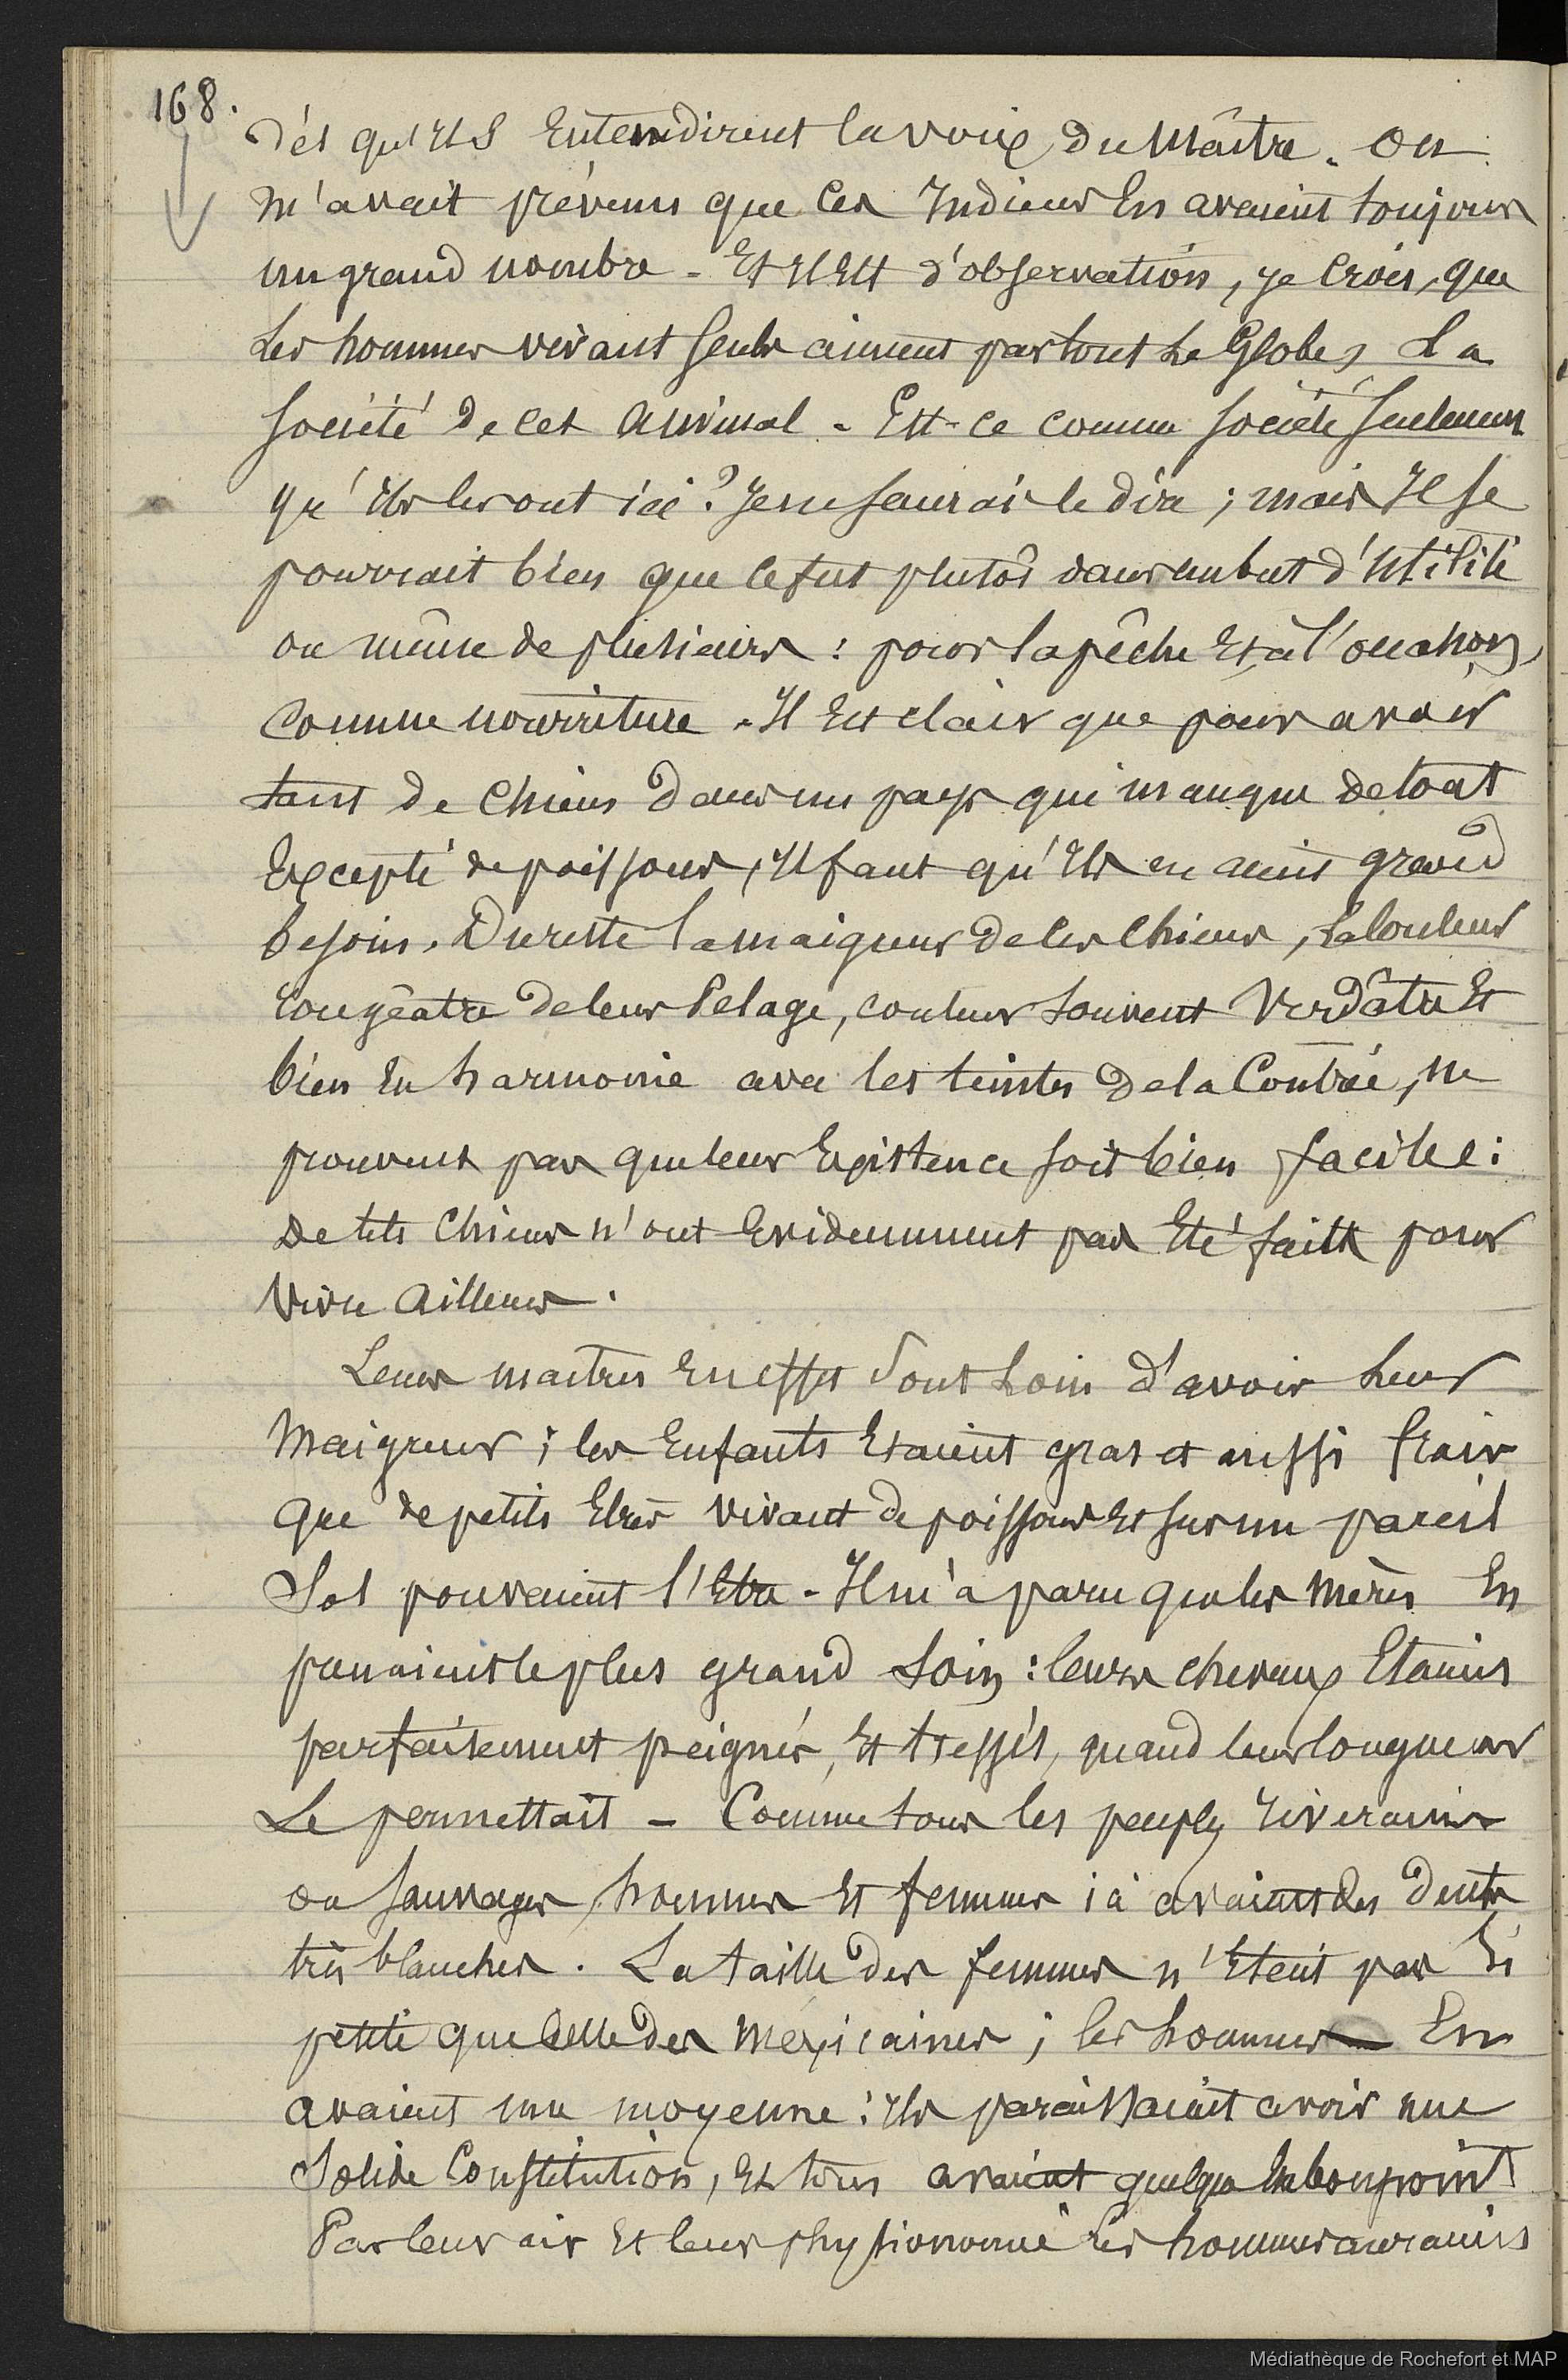 168.
dés qu'Ils Entendirent la voix du Maître. On
m'avait prévenu que ces Indiens En avaient toujours
un grand nombre - Et Il Est d'observation, je crois, que
Les hommes vivant seuls aiment partout Le Globe, La
société de cet animal - Est-ce comme société seulement
qu'Ils les ont ici? Je ne saurais le dire; mais Il se
pourrait bien que ce fut plutôt dans un but d'utilité
ou même de plusieurs: pour la pêche Et à l'occasion,
comme nourriture - Il Est clair que pour avoir
tant de chiens dans un pays qui manque de tout
Excepté de poissons, Il faut qu'Ils en aient grand
besoin. Du reste la maigreur de ces chiens, La couleur
rougeâtre de leur Pelage, couleur souvent Verdâtre Et
bien En harmonie avec les teintes de la Contrée, ne
prouvent pas que leur Existence soit bien facile:
De tels chiens n'ont Evidemment pas Eté faits pour
Vivre Ailleurs.
Leurs maitres En effet Sont Loin d'avoir Leur
Maigreur; les Enfants Etaient gras et aussi frais
que de petits Etres vivant de poissons Et sur un pareil
Sol pouvaient l'Etre - Il m'a paru que les Mères En
prenaient le plus grand Soin: leurs cheveux Etaient
parfaitement peignés, Et tressés, quand leur longueur
Le permettait - Comme tous les peuples riverains
ou sauvages, hommes Et femmes ici avaient des dents
très blanches. La taille des femmes n'Etait pas Si
petite que celle des Mexicaines; les hommes En
avaient une moyenne: Ils paraissaient avoir une
Solide Constitution, Et tous avaient quelque Embonpoint
Par leur air Et leur physionomie Les hommes auraient
Médiathèque de Rochefort et MAP